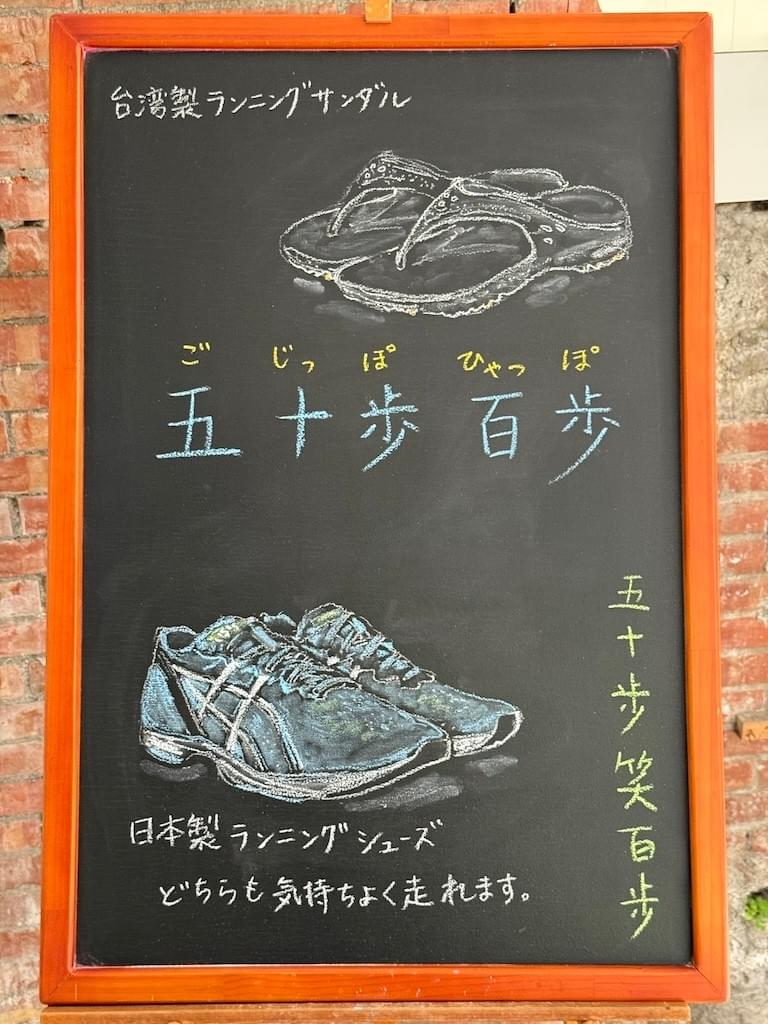 台湾製ランニングサンダル
ご じっ ぽ ひゃっ ぽ
五十歩百歩
五十步笑百步
日本製ランニングシューズ
どちらも気持ちよく走れます。